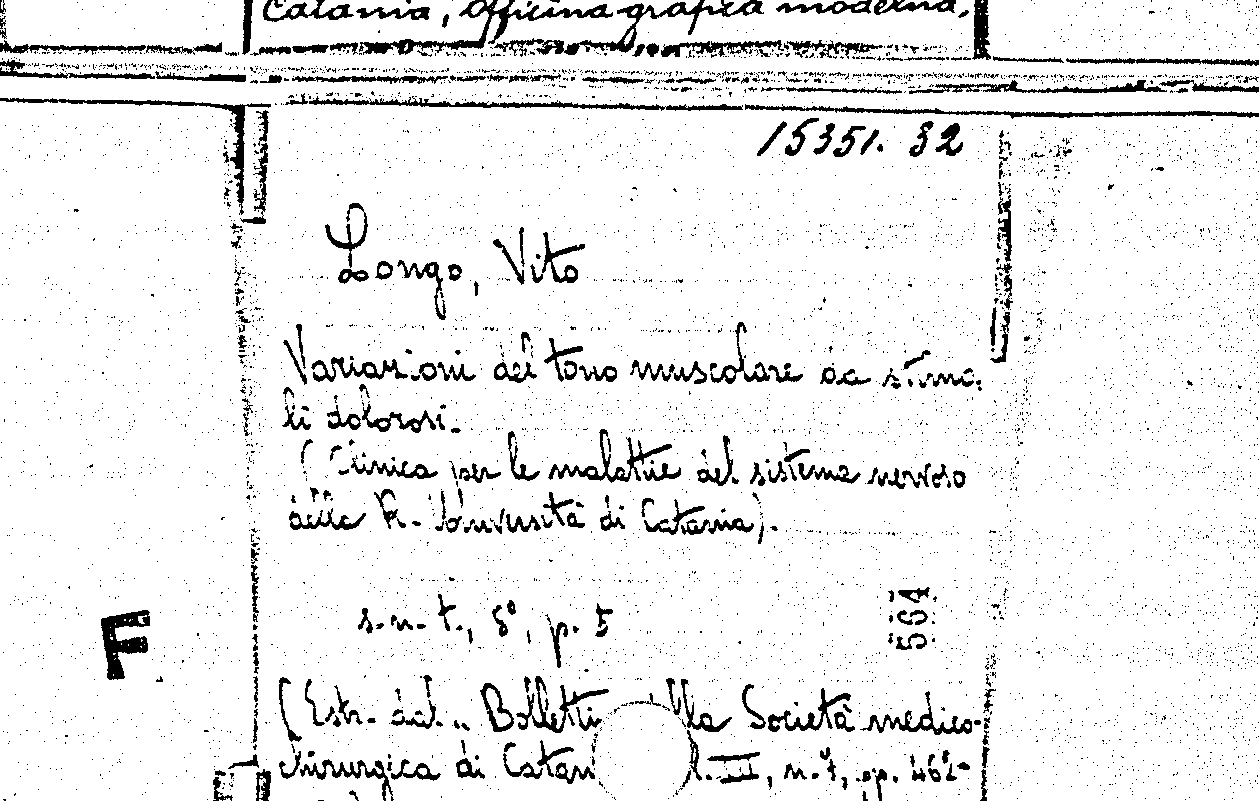 Catania, Officina grafica moderna,
15351. 32
Longo, Vito
Variazioni del tono muscolare da stimo-
li dolorosi.
(Clinica per le malattie del sistema nervoso
della R. Università di Catania).
s. n. t., 8°, p. 5
564
F
(Estr. dal „ Bolletti lla Società medico-
chirurgica di Catan l. III, n. 7, pp. 462-